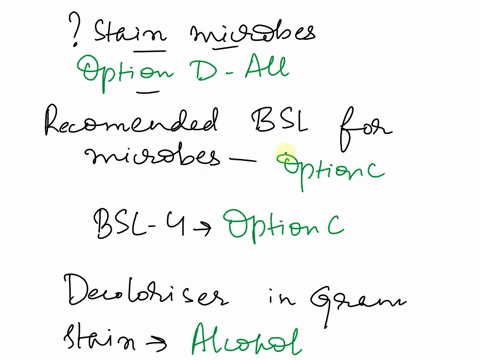 ? Stain microbes
Option D - All
Recomended BSL for
microbes - Option C
BSL-4 → Option C
Decoloriser in Gram
stain → Alcohol